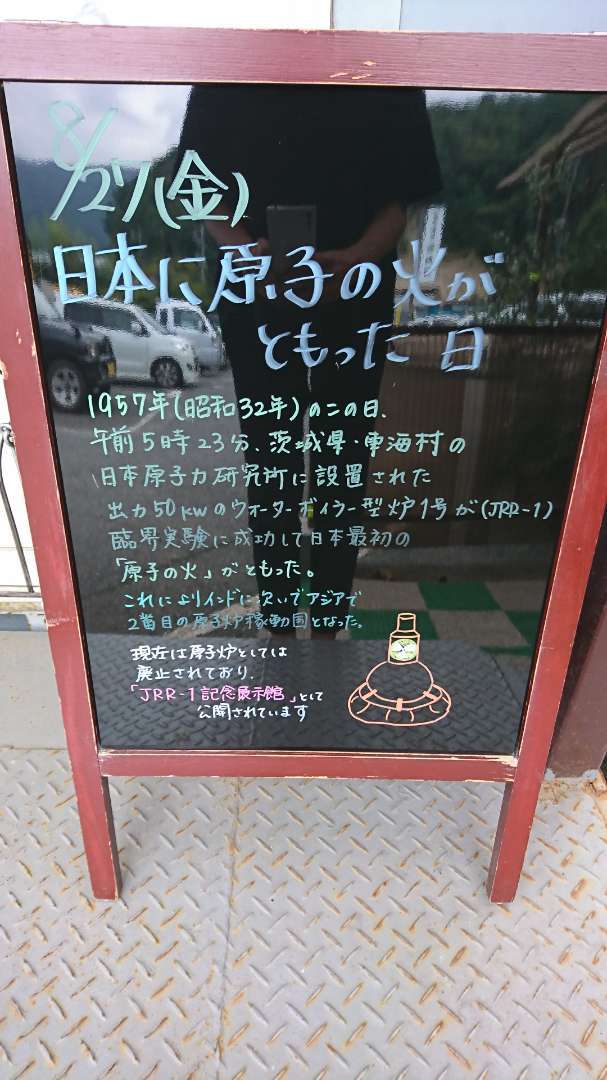 8/27(金)
日本に原子の火が
ともった日
1957年(昭和32年)のこの日、
午前5時23分、茨城県・東海村の
日本原子力研究所に設置された
出力50kwのウォーターボイラー型炉1号が(JRR-1)
臨界実験に成功して日本最初の
「原子の火」がともった。
これによりインドに次いでアジアで
2番目の原子炉稼動国となった。
現在は原子炉としては
廃止されており、
「JRR-1記念展示館」として
公開されています